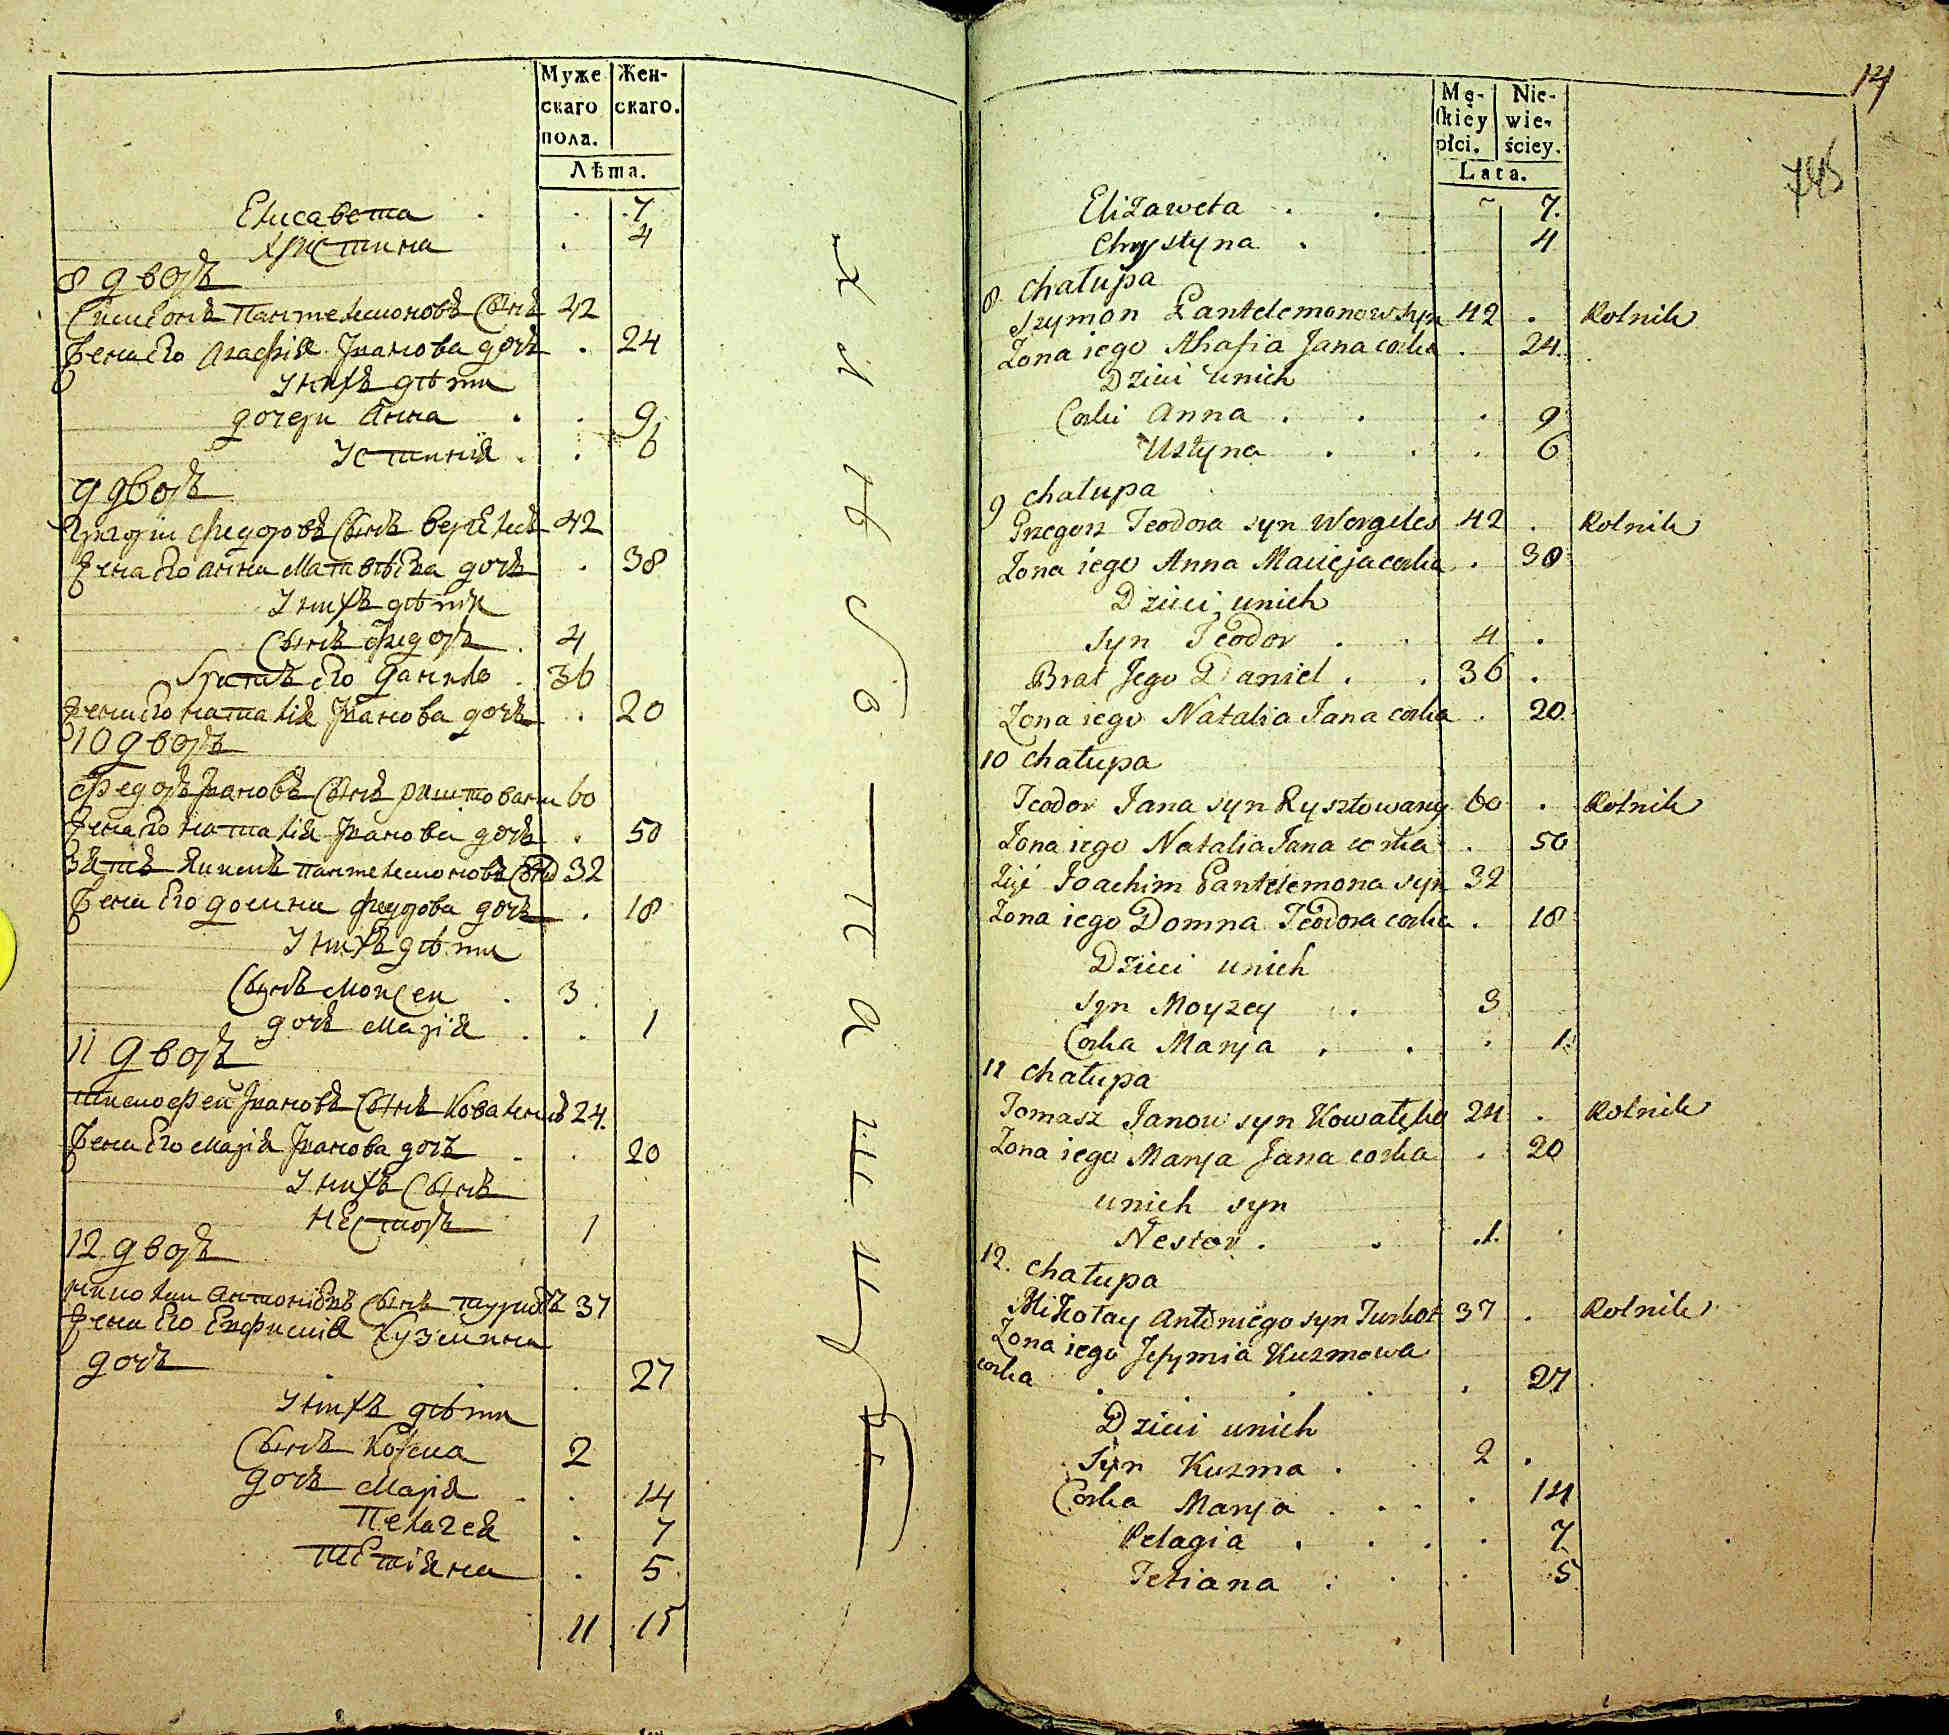 Муже
скаго
пола.
Жен-
скаго.
Лѣта.
Елисавета . . 7
Христина . 4
8 дворъ
Симеонъ Пантелимоновъ Сынъ 42
Жена Его Агафія Іванова дочь . 24
У нихъ дѣти
дочери Анна . . 9
Устинія . . 6
9 дворъ
Григори Федоровъ Сынъ Вергелесъ 42
Жена Его Анна Матвѣева дочь . 38
У нихъ дѣти
Сынъ Федоръ . 4
Братъ Его Данило . 36
Жена Его Наталія Іванова дочь . 20
10 дворъ
Федоръ Івановъ Сынъ риштовани 60
Жена Его Наталія Іванова дочь . 50
Зять Якимъ Пантелимоновъ Сынъ 32
Жена Его домна федорова дочь . 18
У нихъ дѣти
Сынъ Моисеи . 3
дочь Марія . . 1
11 дворъ
тимофей Івановъ Сынъ Коваленко 24.
Жена Его Марія Іванова дочь . . 20
У нихъ Сынъ
Несторъ 1
12 дворъ
Николаи Антоніевъ Сынъ туркотъ 37
Жена Его Евфимія Кузмина
дочь . . . 27
У нихъ дѣти
Сынъ Козма 2
дочь Марія . . 14
Пелагея . 7
Тетіяна . 5
11 15
14
745
Mę-
skiey
płci.
Nie-
wie-
ściey.
Lata.
Elizaweta . . ~ 7.
Chrystyna . 4
8 Chałupa
Szymon Pantelemonow syn 42 . Rolnik
Zona iego Ahafia Jana corka . 24.
Dzieci unich
Corki Anna . . . 9
Ustyna . . . 6
9 Chałupa
Grzegorz Teodora syn Wergeles 42 . Rolnik
Zona iego Anna Macieja corka . 38
Dzieci unich
Syn Teodor . . 4 .
Brat Jego Daniel . . 36 .
Zona iego Natalia Jana corka . 20.
10 Chałupa
Teodor Jana syn Rysztowany 60 . Rolnik
Zona iego Natalia Jana corka . 50
Zięć Joachim Pantelemona syn 32
Zona iego Domna Teodora corka . 18
Dzieci unich
Syn Moyzey . 3
Corka Marya . . . 1.
11 Chałupa
Tomasz Janow syn Kowałęko 24 . Rolnik
Zona iego Marya Jana corka . 20
unich syn
Nestor . . .1. .
12. Chałupa
Mikołay Antoniego syn Turkot 37 . Rolnik
Zona iego Jefymia Kuzmowa
corka . . . . 27
Dzieci unich
Syn Kuzma . . 2 .
Corka Marya . . . . 14
Pelagia . . . . 7
Tetiana . . . 5